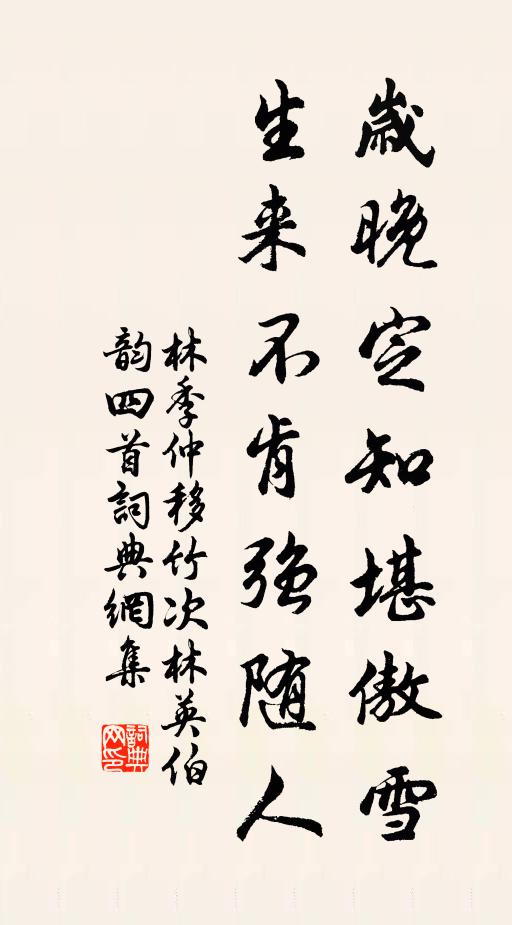 歲晚定知堪傲雪
生来不肯強随人
林季仲移竹次林英伯
韵四首詞典網集
詞典网印